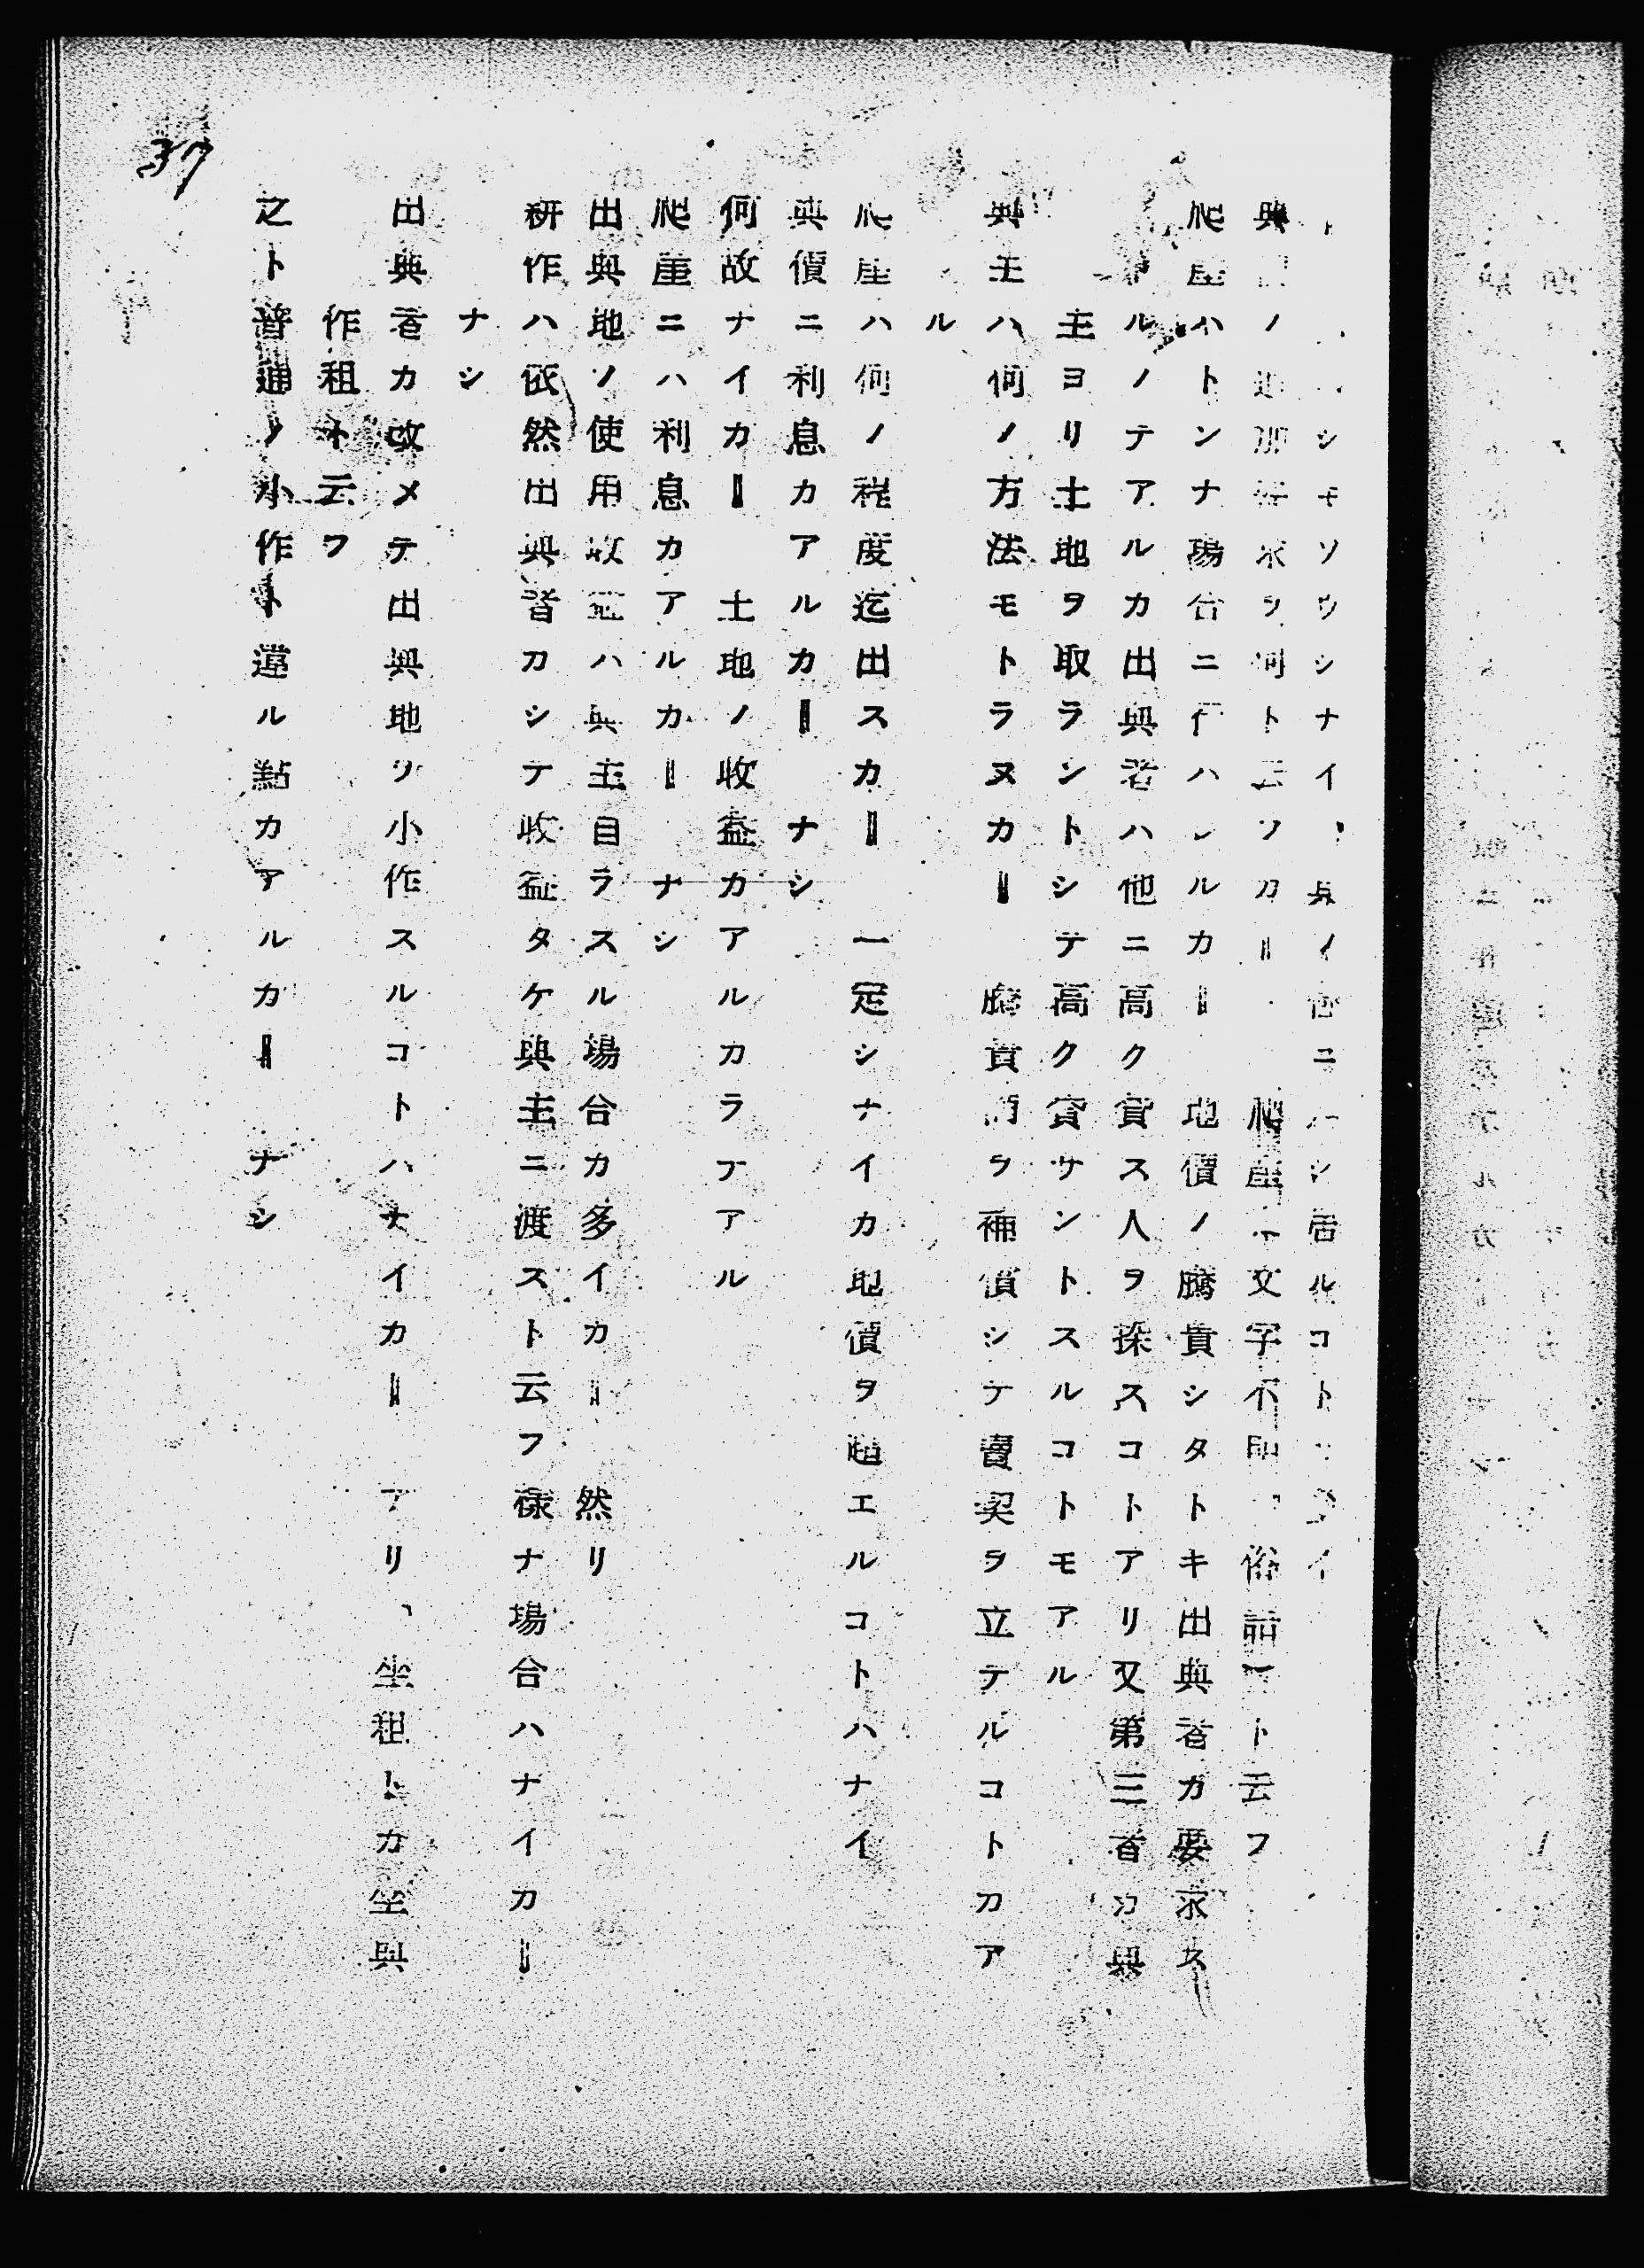 37
シモソウシナイ
典 ノ 求ヲ何ト云フカ‖ 爬崖 文字不明、俗語ート云フ
爬崖ハトンナ場合ニ行ハレルカ‖ 地價ノ騰貴シタトキ出典者ガ要求ス
ルノテアルカ出典者ハ他ニ高ク貸ス人ヲ探スコトアリ又第三者カ典
主ヨリ土地ヲ取ラントシテ高ク貸サントスルコトモアル
典主ハ何ノ方法モトラヌカ‖ 騰貴 ヲ補償シテ賣契ヲ立テルコトカア
ル
爬崖ハ何ノ程度迄出スカ‖ 一定シナイカ地價ヲ超エルコトハナイ
典價ニ利息カアルカ‖ ナシ
何故ナイカ‖ 土地ノ收益カアルカラテアル
爬崖ニハ利息カアルカ‖ ナシ
出典地ノ使用收益ハ典主自ラスル場合カ多イカ‖ 然リ
耕作ハ依然出典者カシテ收益タケ典主ニ渡スト云フ樣ナ場合ハナイカ‖
ナシ
出典者カ改メテ出典地ヲ小作スルコトハナイカ‖ アリ、坐租トカ坐典
作租ト云フ
之ト普通ノ小作ト違ル點カアルカ‖ ナシ